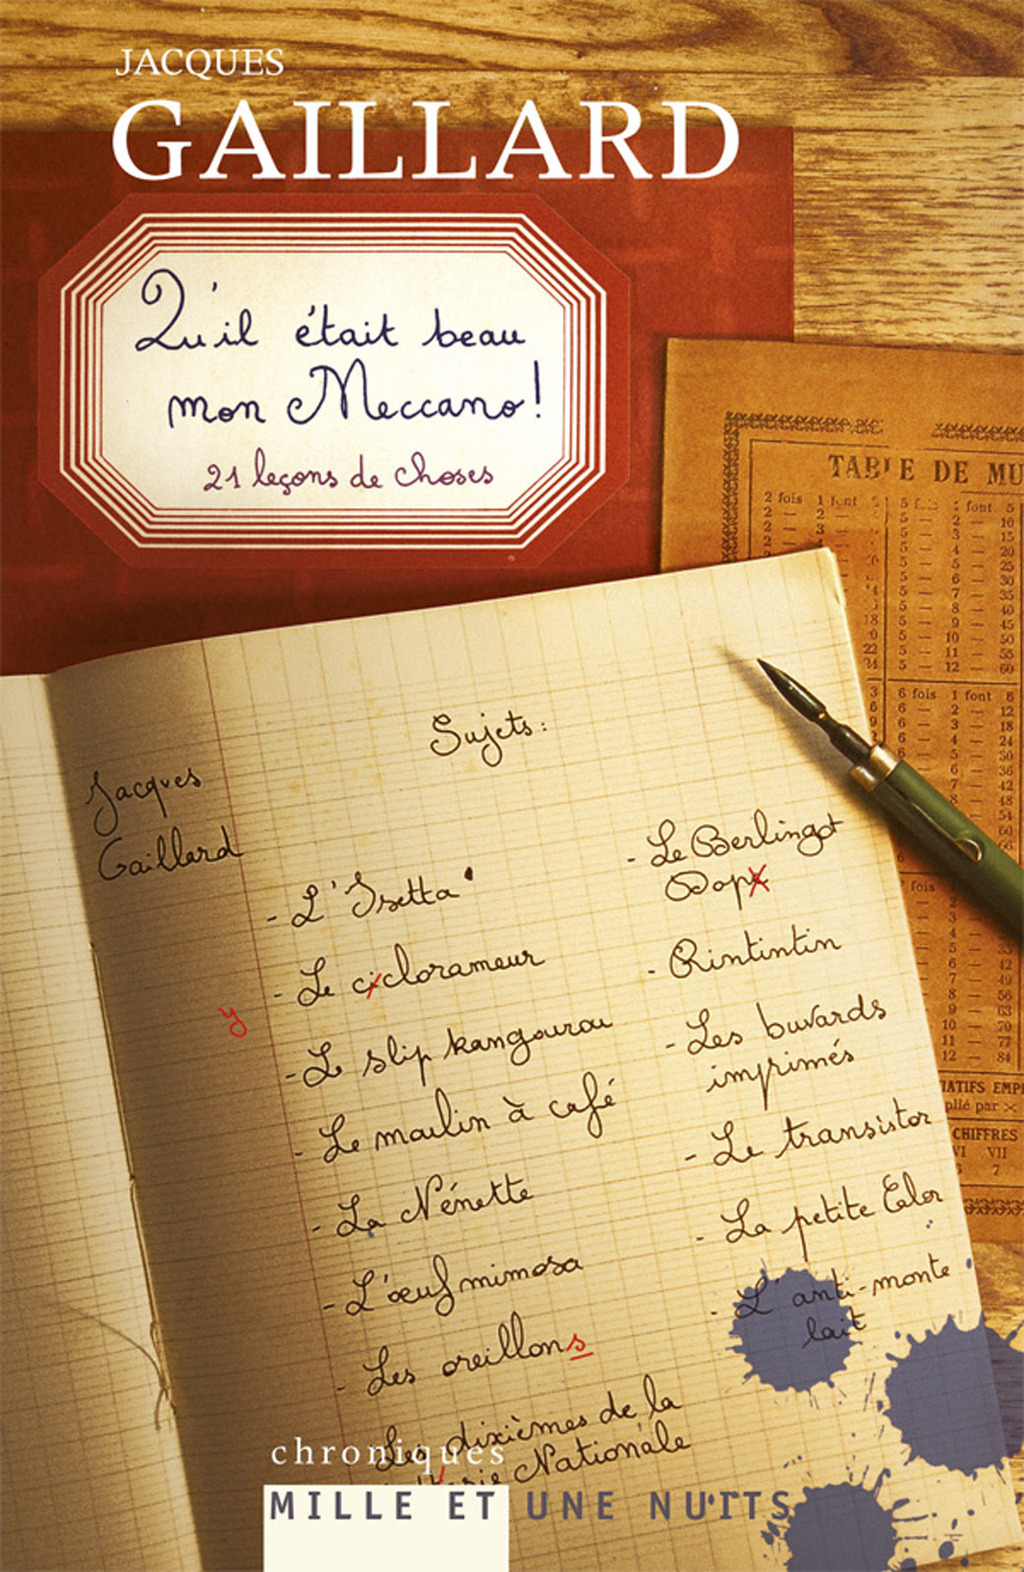 JACQUES
GAILLARD
Qu'il était beau
mon Meccano!
21 leçons de choses
TABLE DE MU
2 fois 1 font
5 1 font 5
2 —
5 — 2 — 10
2 — 3 —
5 — 3 — 15
2 — 4
5 — 4 — 20
5 — 5 — 25
5 — 6 — 30
5 — 7 — 35
5 — 8 — 40
5 — 9 — 45
5 — 10 — 50
22 5 — 11 — 55
5 — 12 — 60
6 fois 1 font 6
6 — 2 — 12
— 3 — 18
— 4 — 24
— 5 — 30
— 6 — 36
7 — 42
8 — 48
fois
5 —
6 — 42
7 — 49
8 — 56
9 — 63
10 — 70
11 — 77
12 — 84
CHIFFRES
VI VII
7
Sujets:
Jacques
Gaillard
- L'Isetta
- Le ciclorameur
y
- Le slip kangourou
- Le moulin à café
- La Nénette
- L'œuf mimosa
- Les oreillons
Les dixièmes de la
Nationale
- Le Berlingot
Dop
- Rintintin
- Les buvards
imprimés
- Le transistor
- La petite Calor
- L'anti-monte
lait
chroniques
MILLE ET UNE NUITS